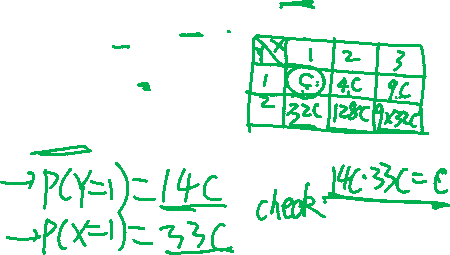 Y X 1 2 3
1 C 4C 9C
2 32C 128C 9x32C
→ P(Y=1) = 14C
→ P(X=1) = 33C
check: 14C·33C = C